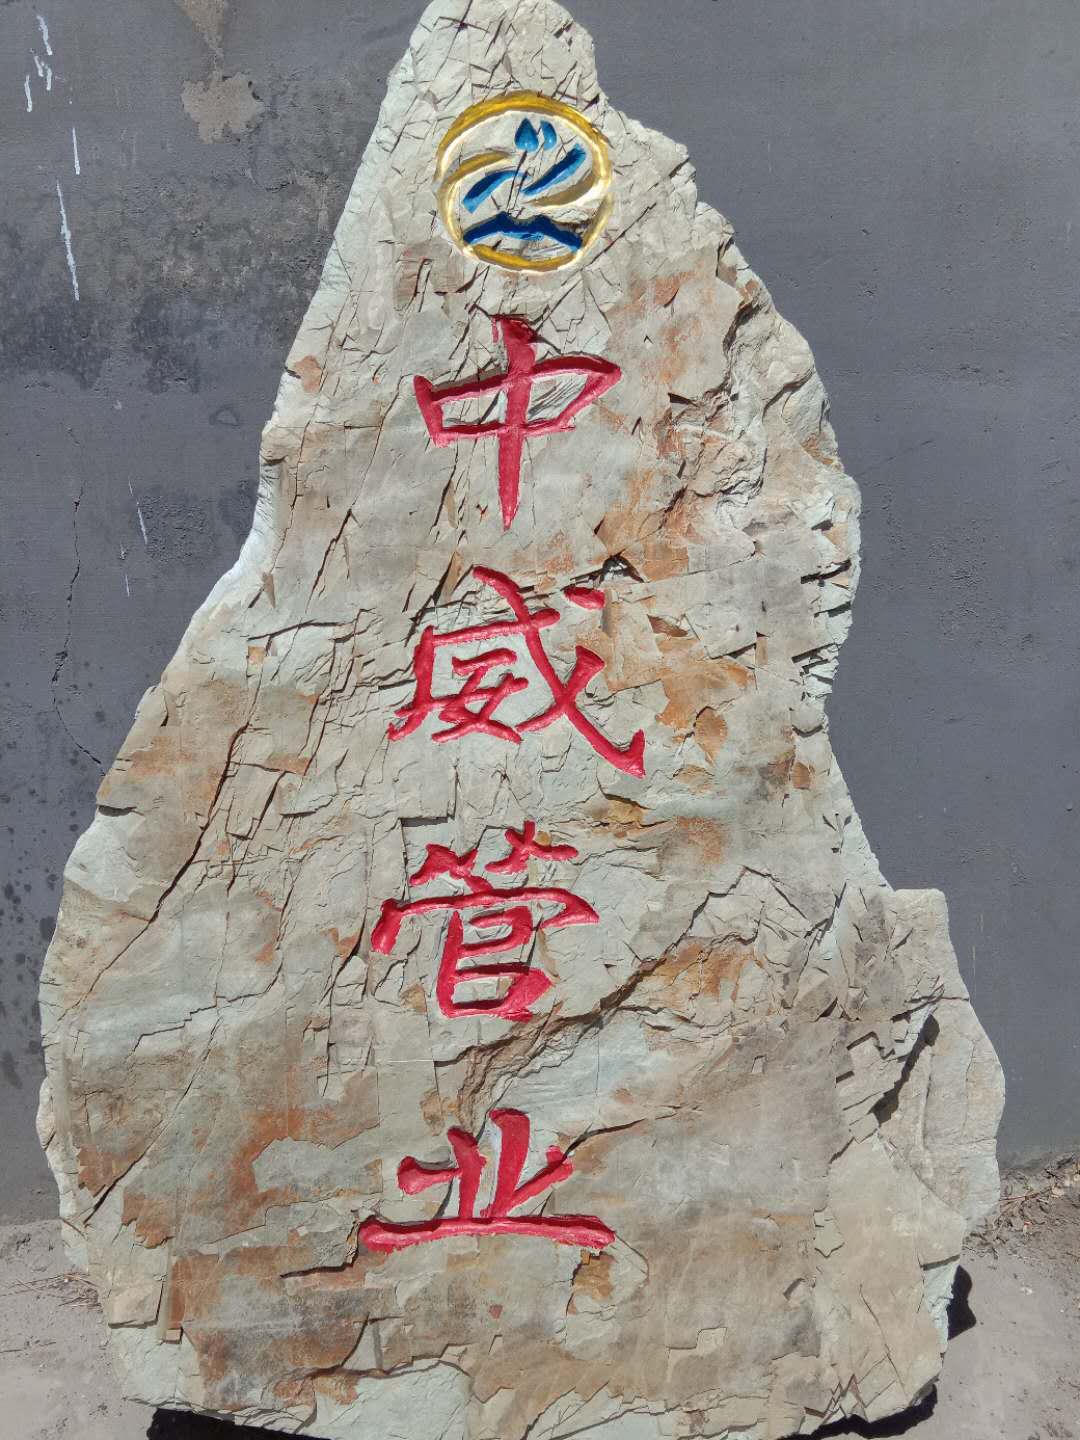 中威管业